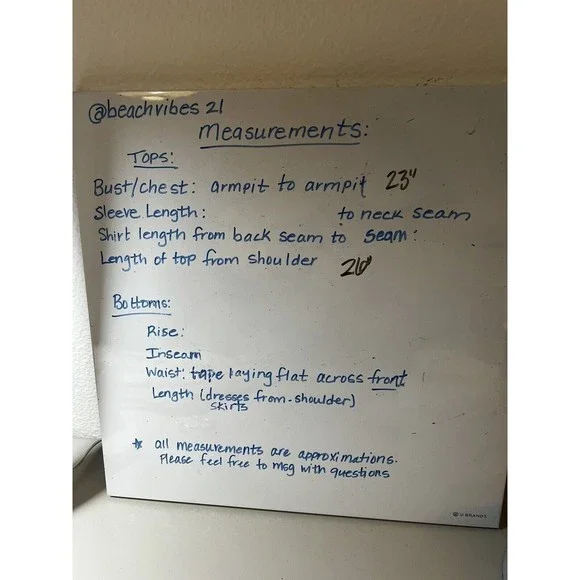 @beachvibes 21
Measurements:
TOPS:
Bust/chest: armpit to armpit 23"
Sleeve Length: to neck seam
Shirt length from back seam to seam:
Length of top from shoulder 26"
Bottoms:
Rise:
Inseam
Waist: tape laying flat across front
Length (dresses from-shoulder)
skirts
* all measurements are approximations.
Please feel free to msg with questions
U BRANDS